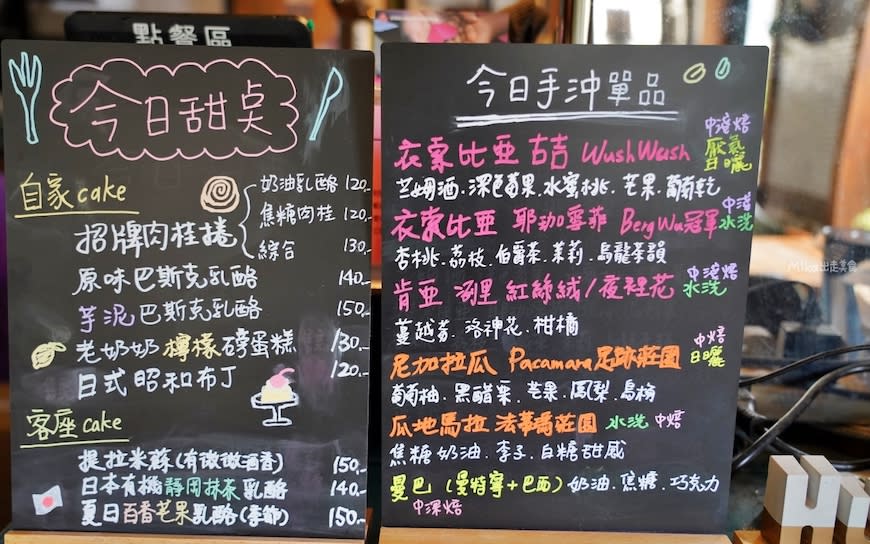 點餐區
今日甜点
自家cake
招牌肉桂捲
奶油乳酪 120.-
焦糖肉桂 120.-
綜合 130.-
原味巴斯克乳酪 140.-
芋泥巴斯克乳酪 150.-
老奶奶檸檬磅蛋糕 130.-
日式昭和布丁 120.-
客座cake
提拉米蘇(有微微酒香) 150.-
日本有機靜岡抹茶乳酪 140.-
夏日百香芒果乳酪(季節) 150.-
今日手沖單品
衣索比亞 古吉 WushWush 中淺焙 厭氧 日曬
蘭姆酒.深色莓果.水蜜桃.芒果.葡萄乾
衣索比亞 耶加雪菲 BergWu冠軍 中淺 水洗
杏桃.荔枝.伯爵茶.茉莉.烏龍茶韻
肯亞 涮里 紅絲絨/夜裡花 中淺焙 水洗
蔓越莓.洛神花.柑橘
尼加拉瓜 Pacamara足跡莊園 中焙 日曬
葡萄柚.黑醋栗.芒果.鳳梨.烏梅
瓜地馬拉 法蒂瑪莊園 水洗 中焙
焦糖奶油.李子.白糖甜感
曼巴(曼特寧+巴西) 奶油.焦糖.巧克力
中深焙
Mika出走美食